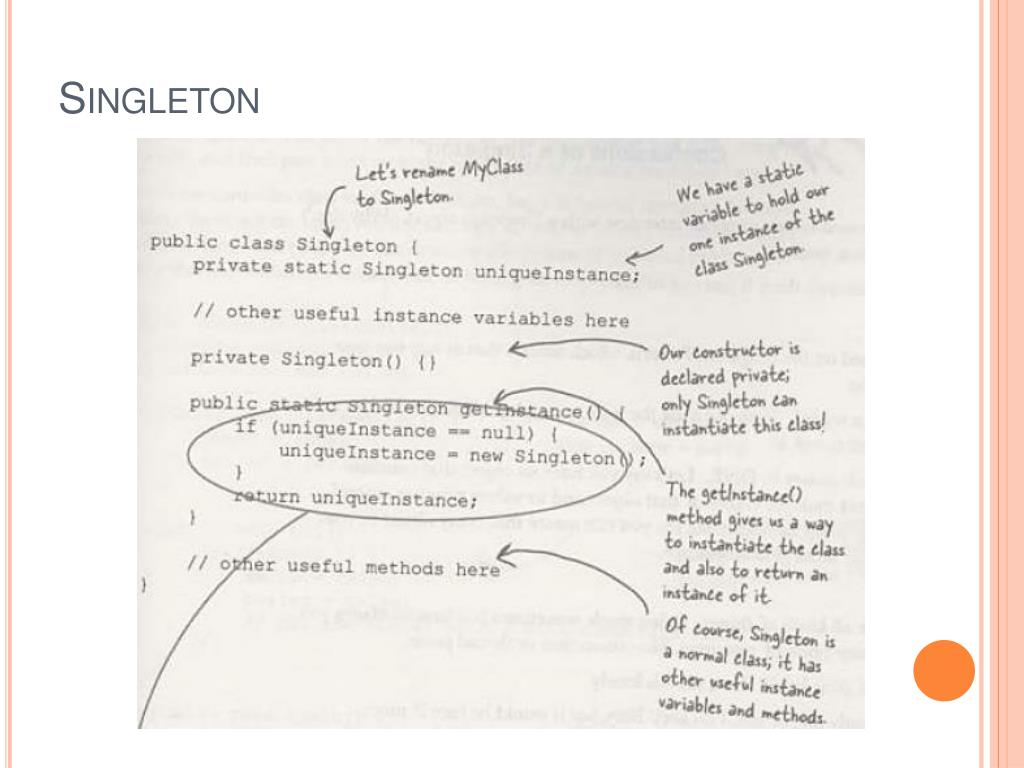 SINGLETON
Let's rename MyClass
to Singleton.
We have a static
variable to hold our
one instance of the
class Singleton.
public class Singleton {
private static Singleton uniqueInstance;
// other useful instance variables here
Our constructor is
declared private;
only Singleton can
instantiate this class!
private Singleton() {}
public static Singleton getInstance() {
if (uniqueInstance == null) {
uniqueInstance = new Singleton();
}
return uniqueInstance;
}
The getInstance()
method gives us a way
to instantiate the class
and also to return an
instance of it.
// other useful methods here
}
Of course, Singleton is
a normal class; it has
other useful instance
variables and methods.